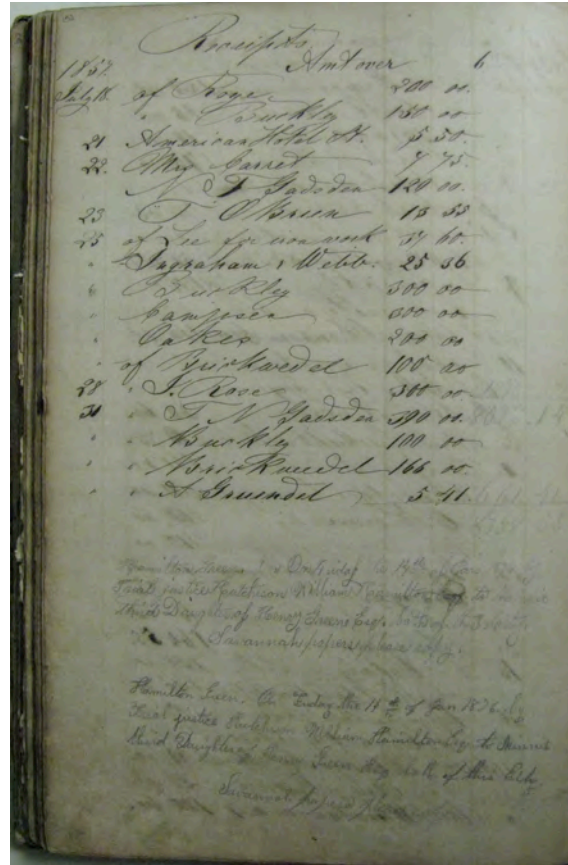 Receipts
Amt over 6
1857
July 18. of Roye 200 00
" Buckley 150 00
21 American Hotel St. 5 50.
22. Mrs Garret 7 75.
N Gadsden 120 00.
23 T O'Brien 13 55
25 of Lee for iron work 37 60.
" Ingraham & Webb. 25 36
" Buckley 300 00
" 300 00
" Oakes 200 00
" of Brickwedel 100 00
28 " J. Rose 300 00
31 " T N Gadsden 390 00.
" " Buckley 100 00
" " Brickwedel 166 00.
" " A Gruendel 5 41.
Hamilton On Friday 14th of Jan
Trial justice Hutchison William Hamilton Esq. to
third Daughter of Henry Esq.
Savannah papers please copy.
Hamilton On Friday the 14th of Jan 1876 by
Trial justice Hutchison William Hamilton Esq. to
third Daughter of Henry Esq. both of this City
Savannah papers Please